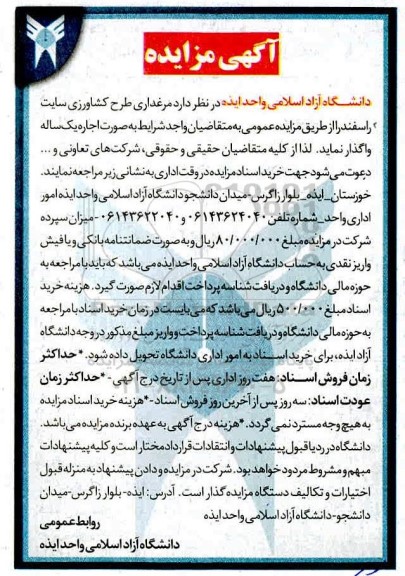 آگهی مزایده
دانشگاه آزاد اسلامی واحد ایذه در نظر دارد مرغداری طرح کشاورزی سایت
راسفند را از طریق مزایده عمومی به متقاضیان واجد شرایط به صورت اجاره یک ساله
واگذار نماید. لذا از کلیه متقاضیان حقیقی و حقوقی، شرکت های تعاونی و ...
دعوت می شود جهت خرید اسناد مزایده در وقت اداری به نشانی زیر مراجعه نمایند.
خوزستان_ایذه_بلوار زاگرس-میدان دانشجو دانشگاه آزاد اسلامی واحد ایذه امور
اداری واحد_شماره تلفن ۰۶۱۴۳۶۲۴۰۴۰ و ۰۶۱۴۳۶۲۲۰۴۰-میزان سپرده
شرکت در مزایده مبلغ ۸۰/۰۰۰/۰۰۰ ریال و به صورت ضمانتنامه بانکی و یا فیش
واریز نقدی به حساب دانشگاه آزاد اسلامی واحد ایذه می باشد که باید با مراجعه به
حوزه مالی دانشگاه و دریافت شناسه پرداخت اقدام لازم صورت گیرد. هزینه خرید
اسناد مبلغ ۵۰۰/۰۰۰ ریال می باشد که می بایست در زمان خرید اسناد با مراجعه
به حوزه مالی دانشگاه و دریافت شناسه پرداخت و واریز مبلغ مذکور در وجه دانشگاه
آزاد ایذه، برای خرید اسناد به امور اداری دانشگاه تحویل داده شود. *حداکثر
زمان فروش اسناد: هفت روز اداری پس از تاریخ درج آگهی- *حداکثر زمان
عودت اسناد: سه روز پس از آخرین روز فروش اسناد-*هزینه خرید اسناد مزایده
به هیچ وجه مسترد نمی گردد. *هزینه درج آگهی به عهده برنده مزایده می باشد.
دانشگاه در رد یا قبول پیشنهادات و انتقادات قرارداد مختار است و کلیه پیشنهادات
مبهم و مشروط مردود خواهد بود. شرکت در مزایده و دادن پیشنهاد به منزله قبول
اختیارات و تکالیف دستگاه مزایده گذار است. آدرس: ایذه-بلوار زاگرس-میدان
دانشجو-دانشگاه آزاد اسلامی واحد ایذه
روابط عمومی
دانشگاه آزاد اسلامی واحد ایذه